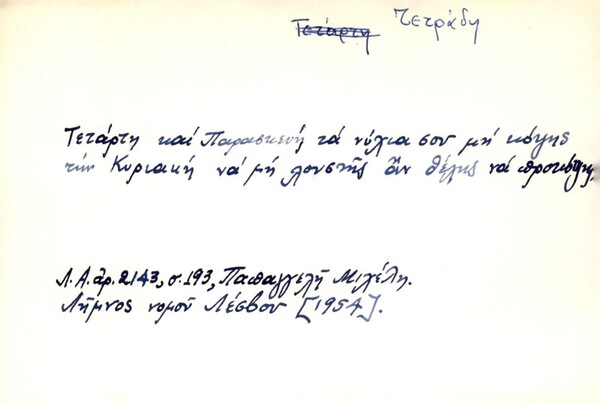 Τετάρτη Τετράδη
Τετάρτη καί Παρασκευή τά νύχια σου μή κόψης
τήν Κυριακή νά μή λουστῆς ἄν θέλης νά προκόψης
Λ.Α. ἀρ. 2143, σ. 193, Παπαγγελῆ Μιχέλη.
Λῆμνος νομοῦ Λέσβου [1954].